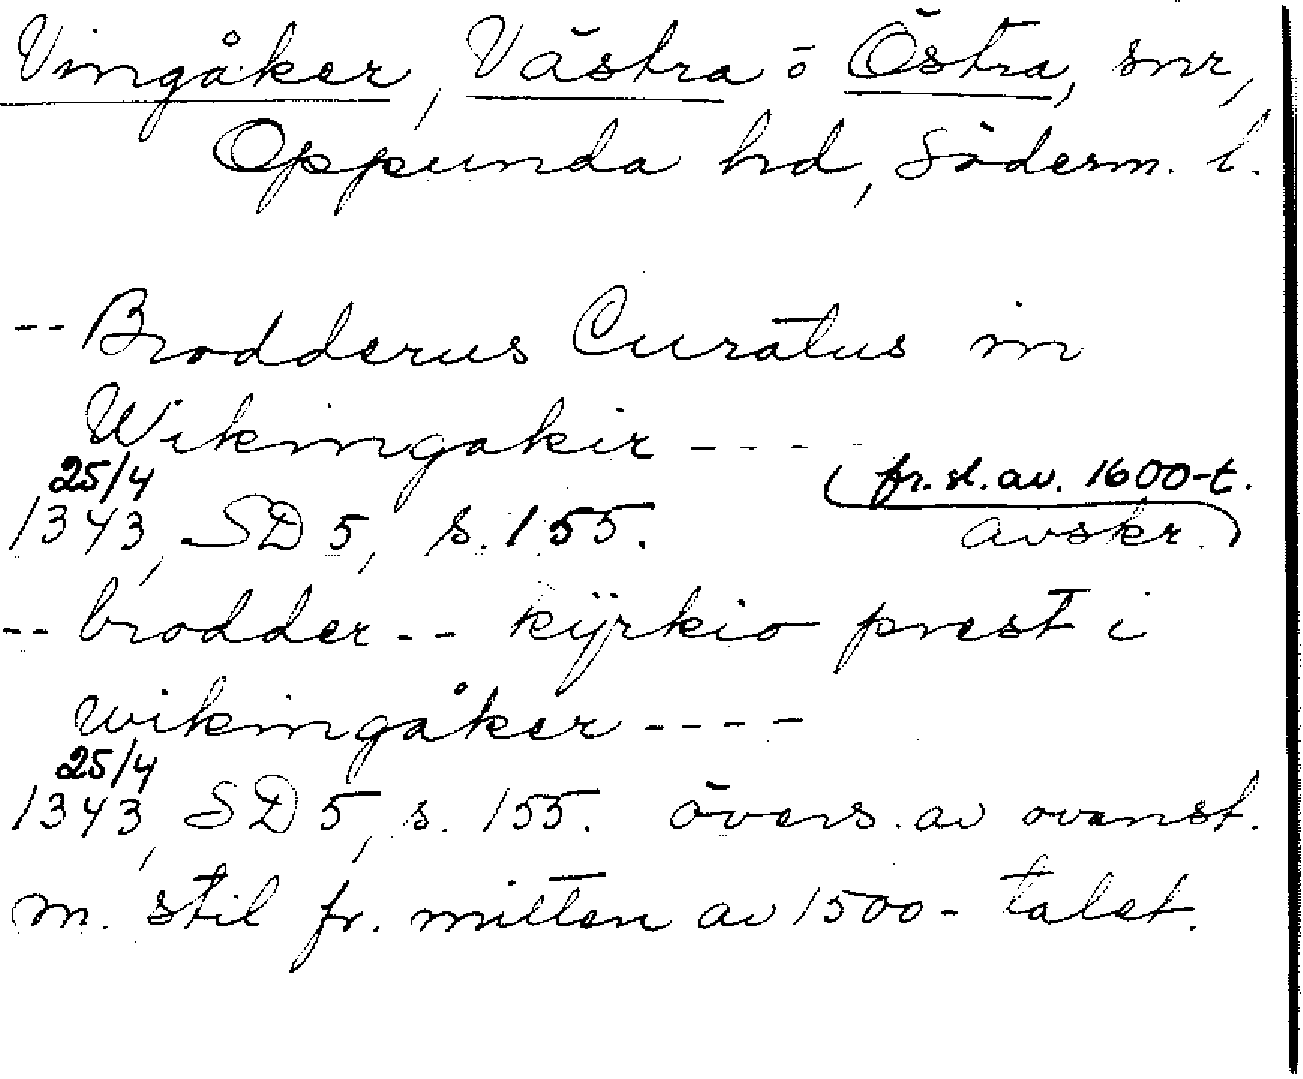 Vingåker, Västra o Östra, snr,
Oppunda hd, Söderm. l.
-- Brodderus Curatus in
Wikingakir ----
25/4 (fr. sl. av. 1600-t.
1343, SD 5, s. 155. avskr.)
-- brodder -- kÿrkio prest i
wikingåker ----
25/4
1343, SD 5, s. 155. övers. av ovanst.
m. stil fr. mitten av 1500-talet.